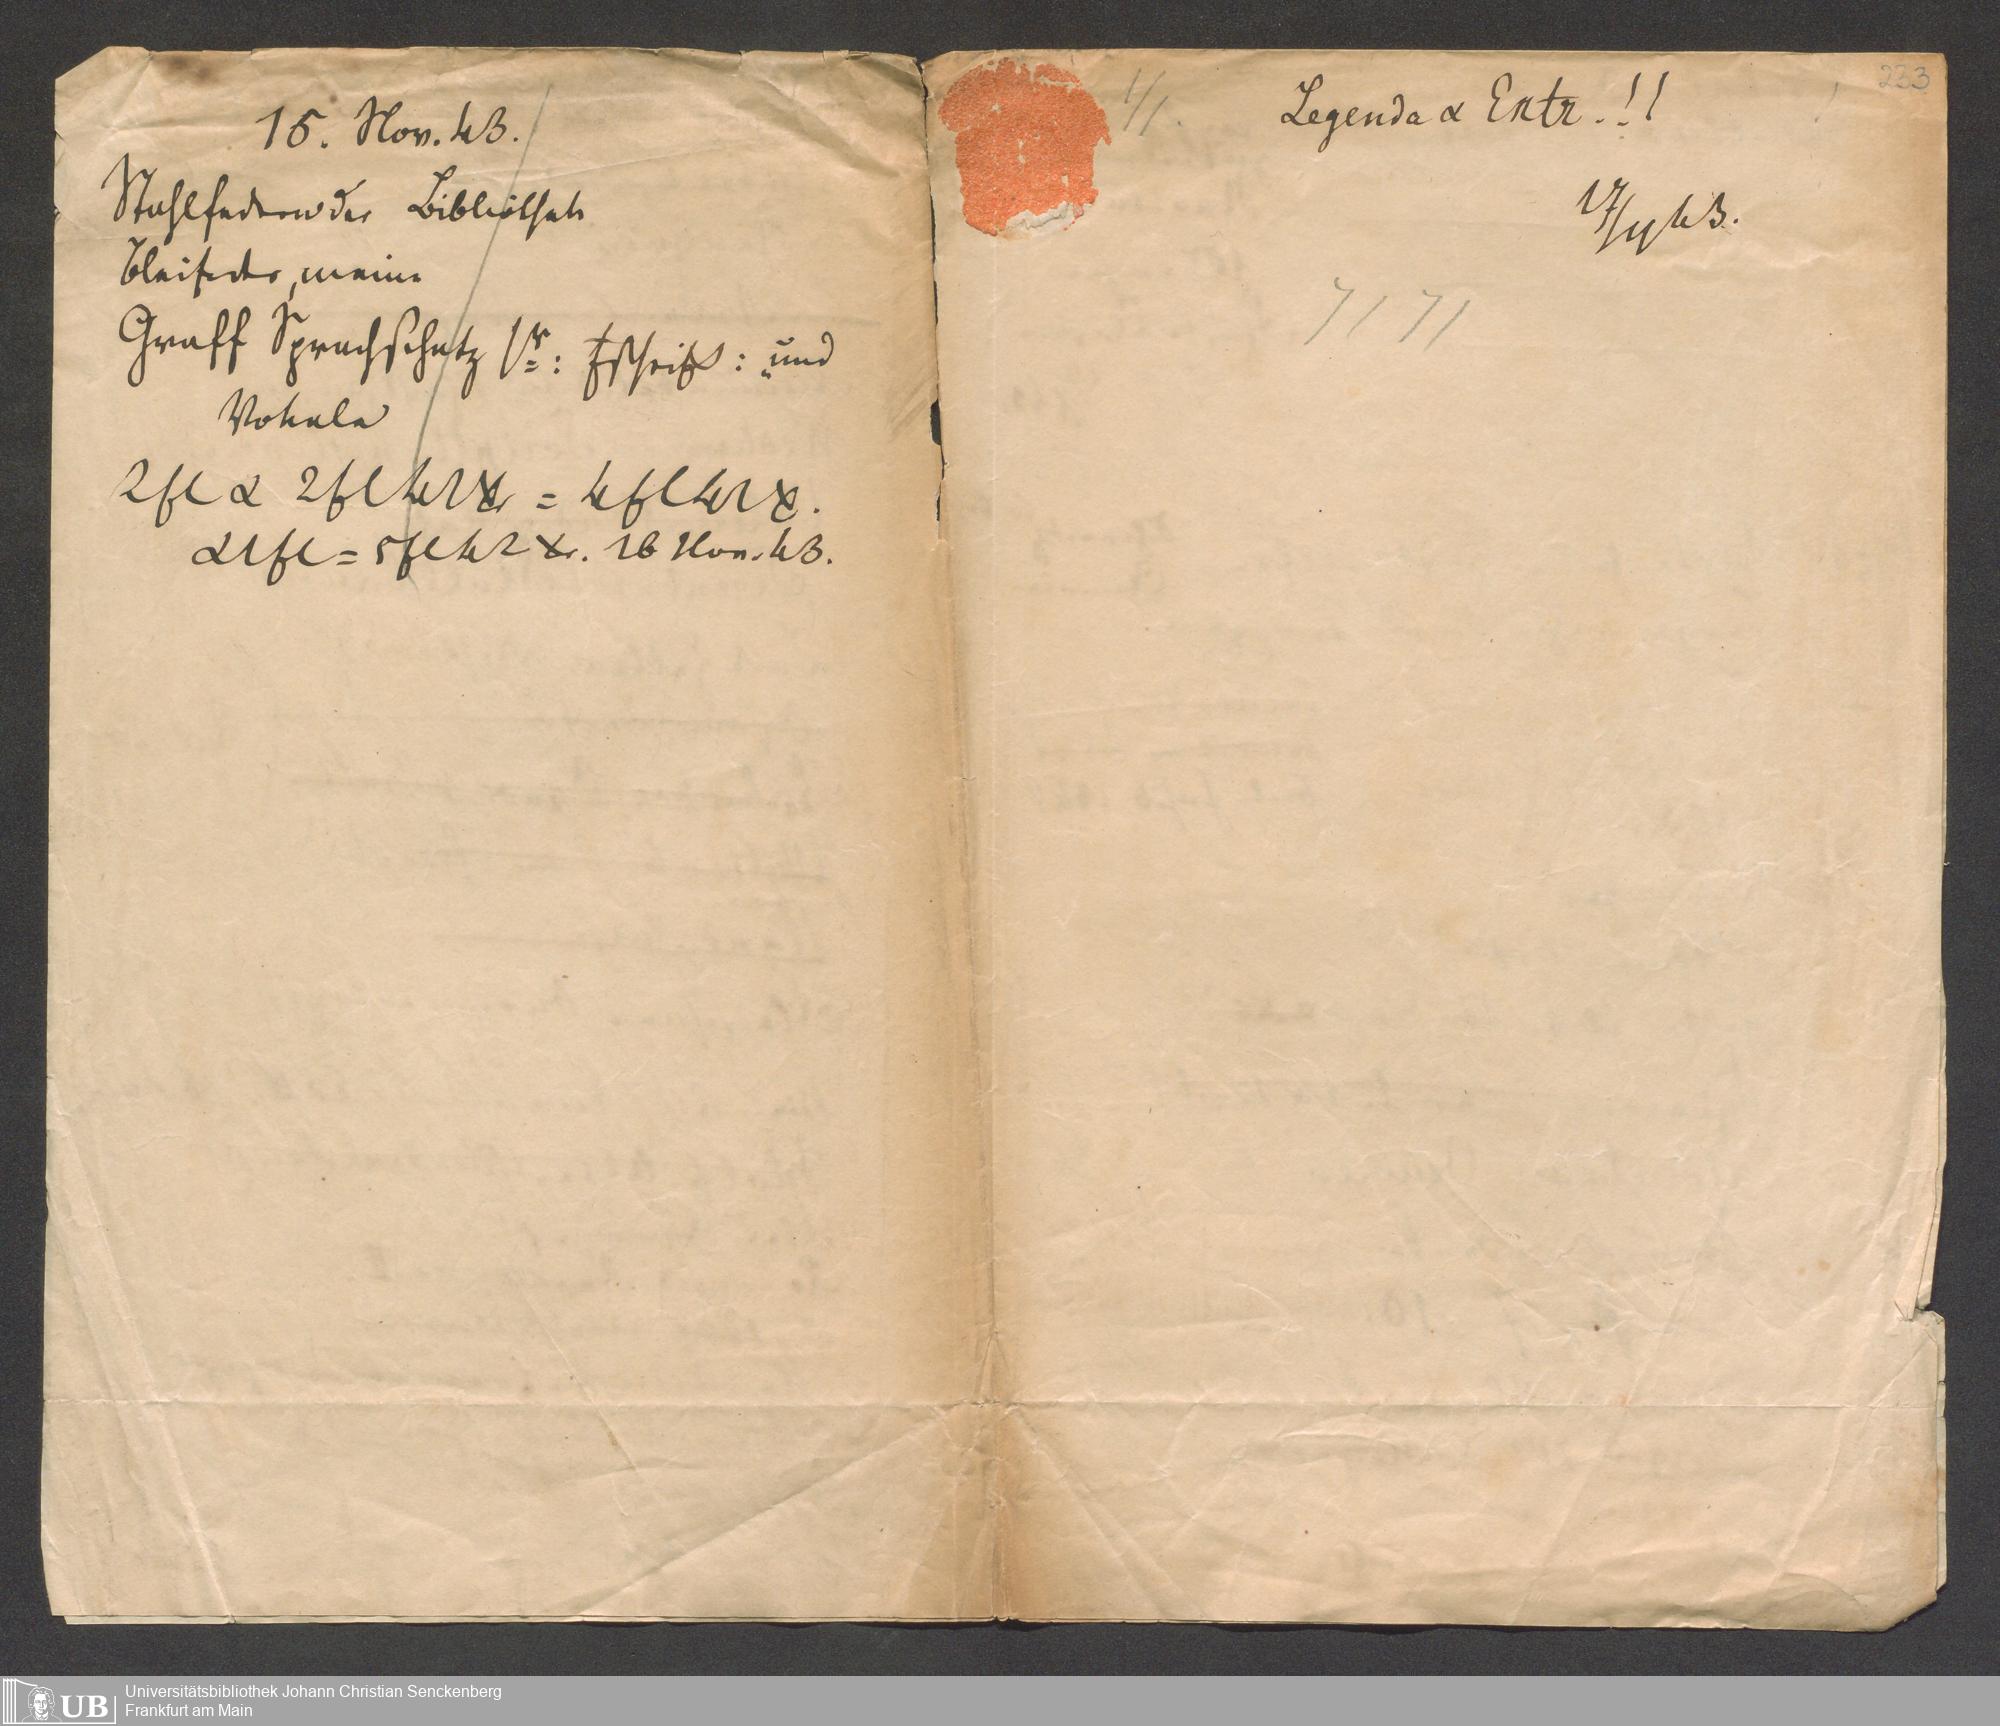 15. Nov. 43.
Stahlfedern der Bibliothek
Bleifeder, meine
Graff Sprachschatz und
Vokale
2 fl & 2 fl 42 xr = 4 fl 42 xr.
& 1 fl = 5 fl 42 xr. 16 Nov. 43.
1/1.
Legenda & Extr.!!
233
17/11 43.
7171
UB
Universitätsbibliothek Johann Christian Senckenberg
Frankfurt am Main